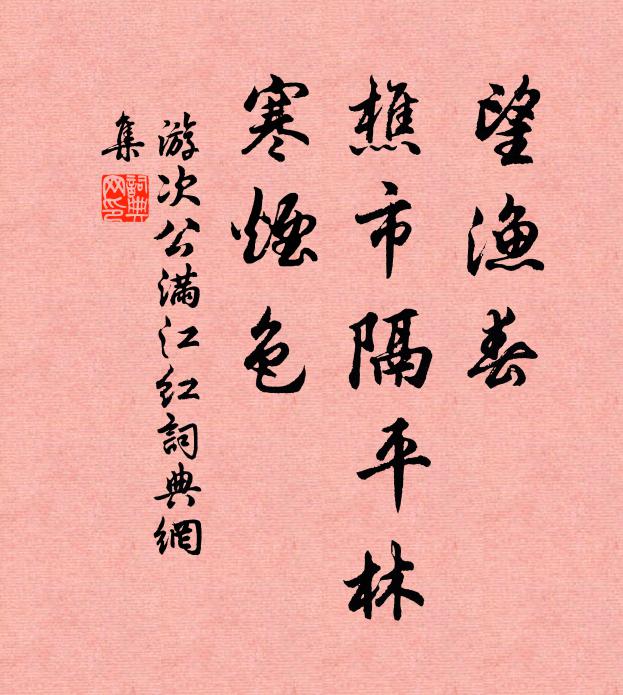 望渔春
樵市隔平林
寒煙色
游次公满江红詞典網
集
詞典
网印